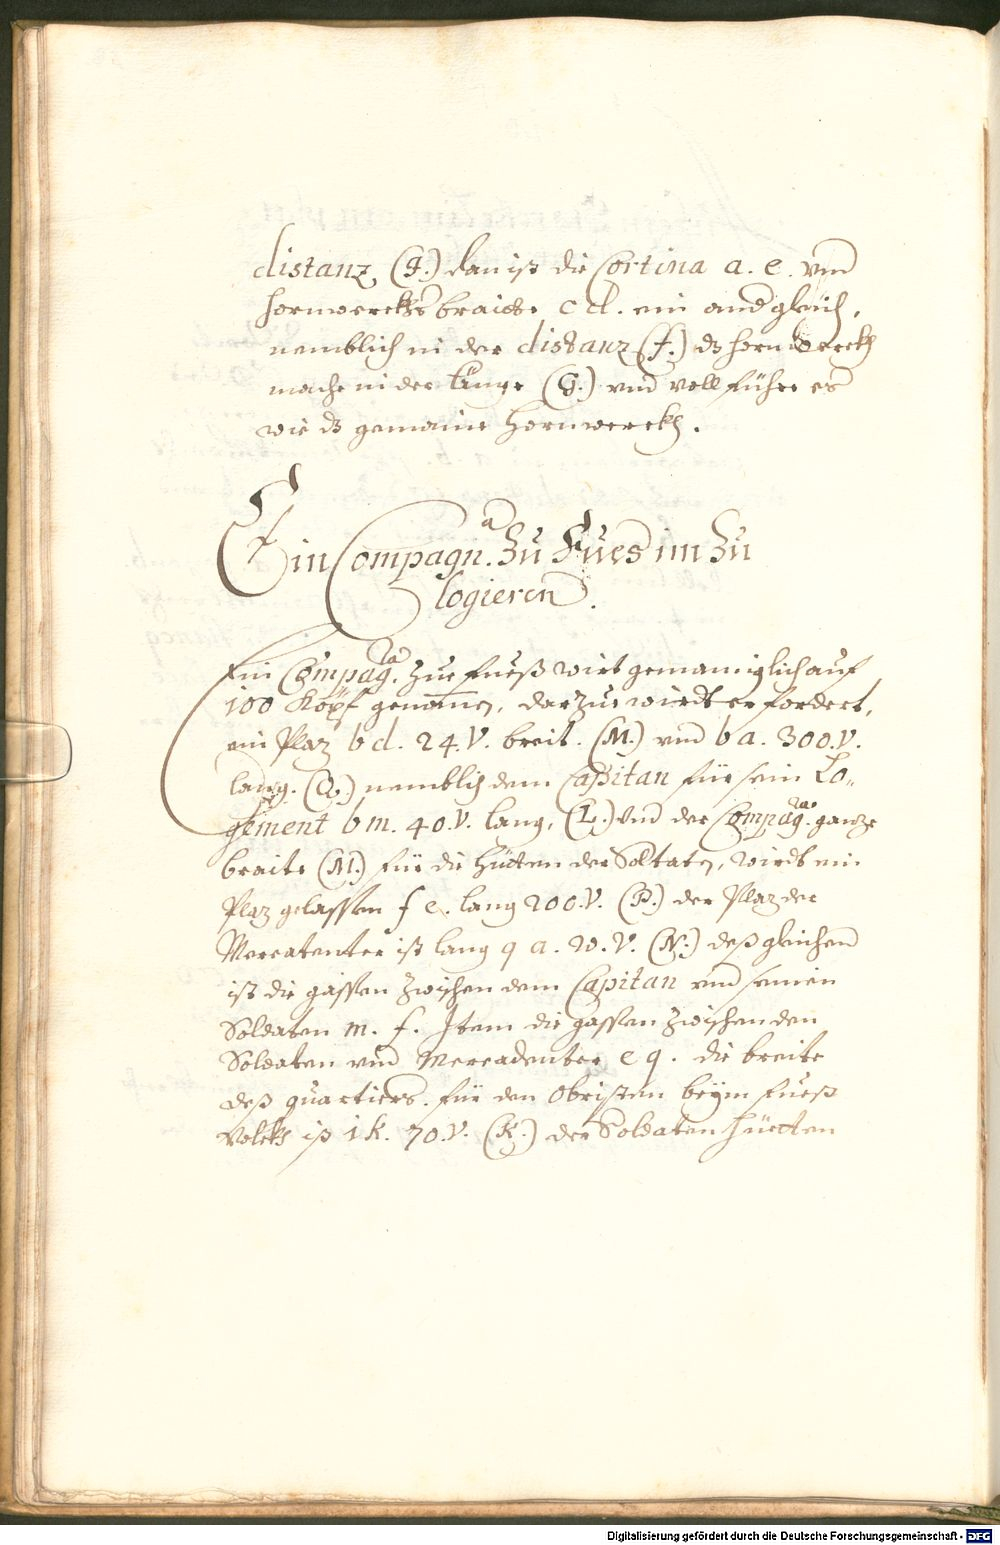 distanz (F.) dan ist die Cortina a. e. vnd
hornwerckhs braitte c d. ein and gleich,
nemblich in der distanz (f.) dz hornwerckh
mache in der länge (G.) vnd vollführe es
wie dz gemaine hornwerckh.
Ein Compagn.a zu Fues im zu
logieren.
Ein Compag.ia zue fueß wirt gemainiglich auf
100 Köpf genommen, darzue wirdt erfordert,
ein Plaz b d. 24. V. breit. (M.) vnd b a. 300. V.
lang. (Q.) nemblich dem Capitan für sein Lo-
gement b m. 40. V. lang, (L.) vnd der Compag.ia ganze
braite (M.) für die hütten der Soltaten, wirdt ein
Plaz gelassen f e. lang 200. V. (P.) der Plaz der
Mercatenter ist lang q a. 20. V. (N.) deßgleichen
ist die gassen zwischen dem Capitan vnd seinen
Soldaten m. f. Item die gassen zwischen den
Soldaten vnd Mercadenter e q. die breite
deß quartiers. für den Obristen beÿm fueß
Volckh ist i k. 70. V. (K.) der Soldaten hüetten
Digitalisierung gefördert durch die Deutsche Forschungsgemeinschaft - DFG